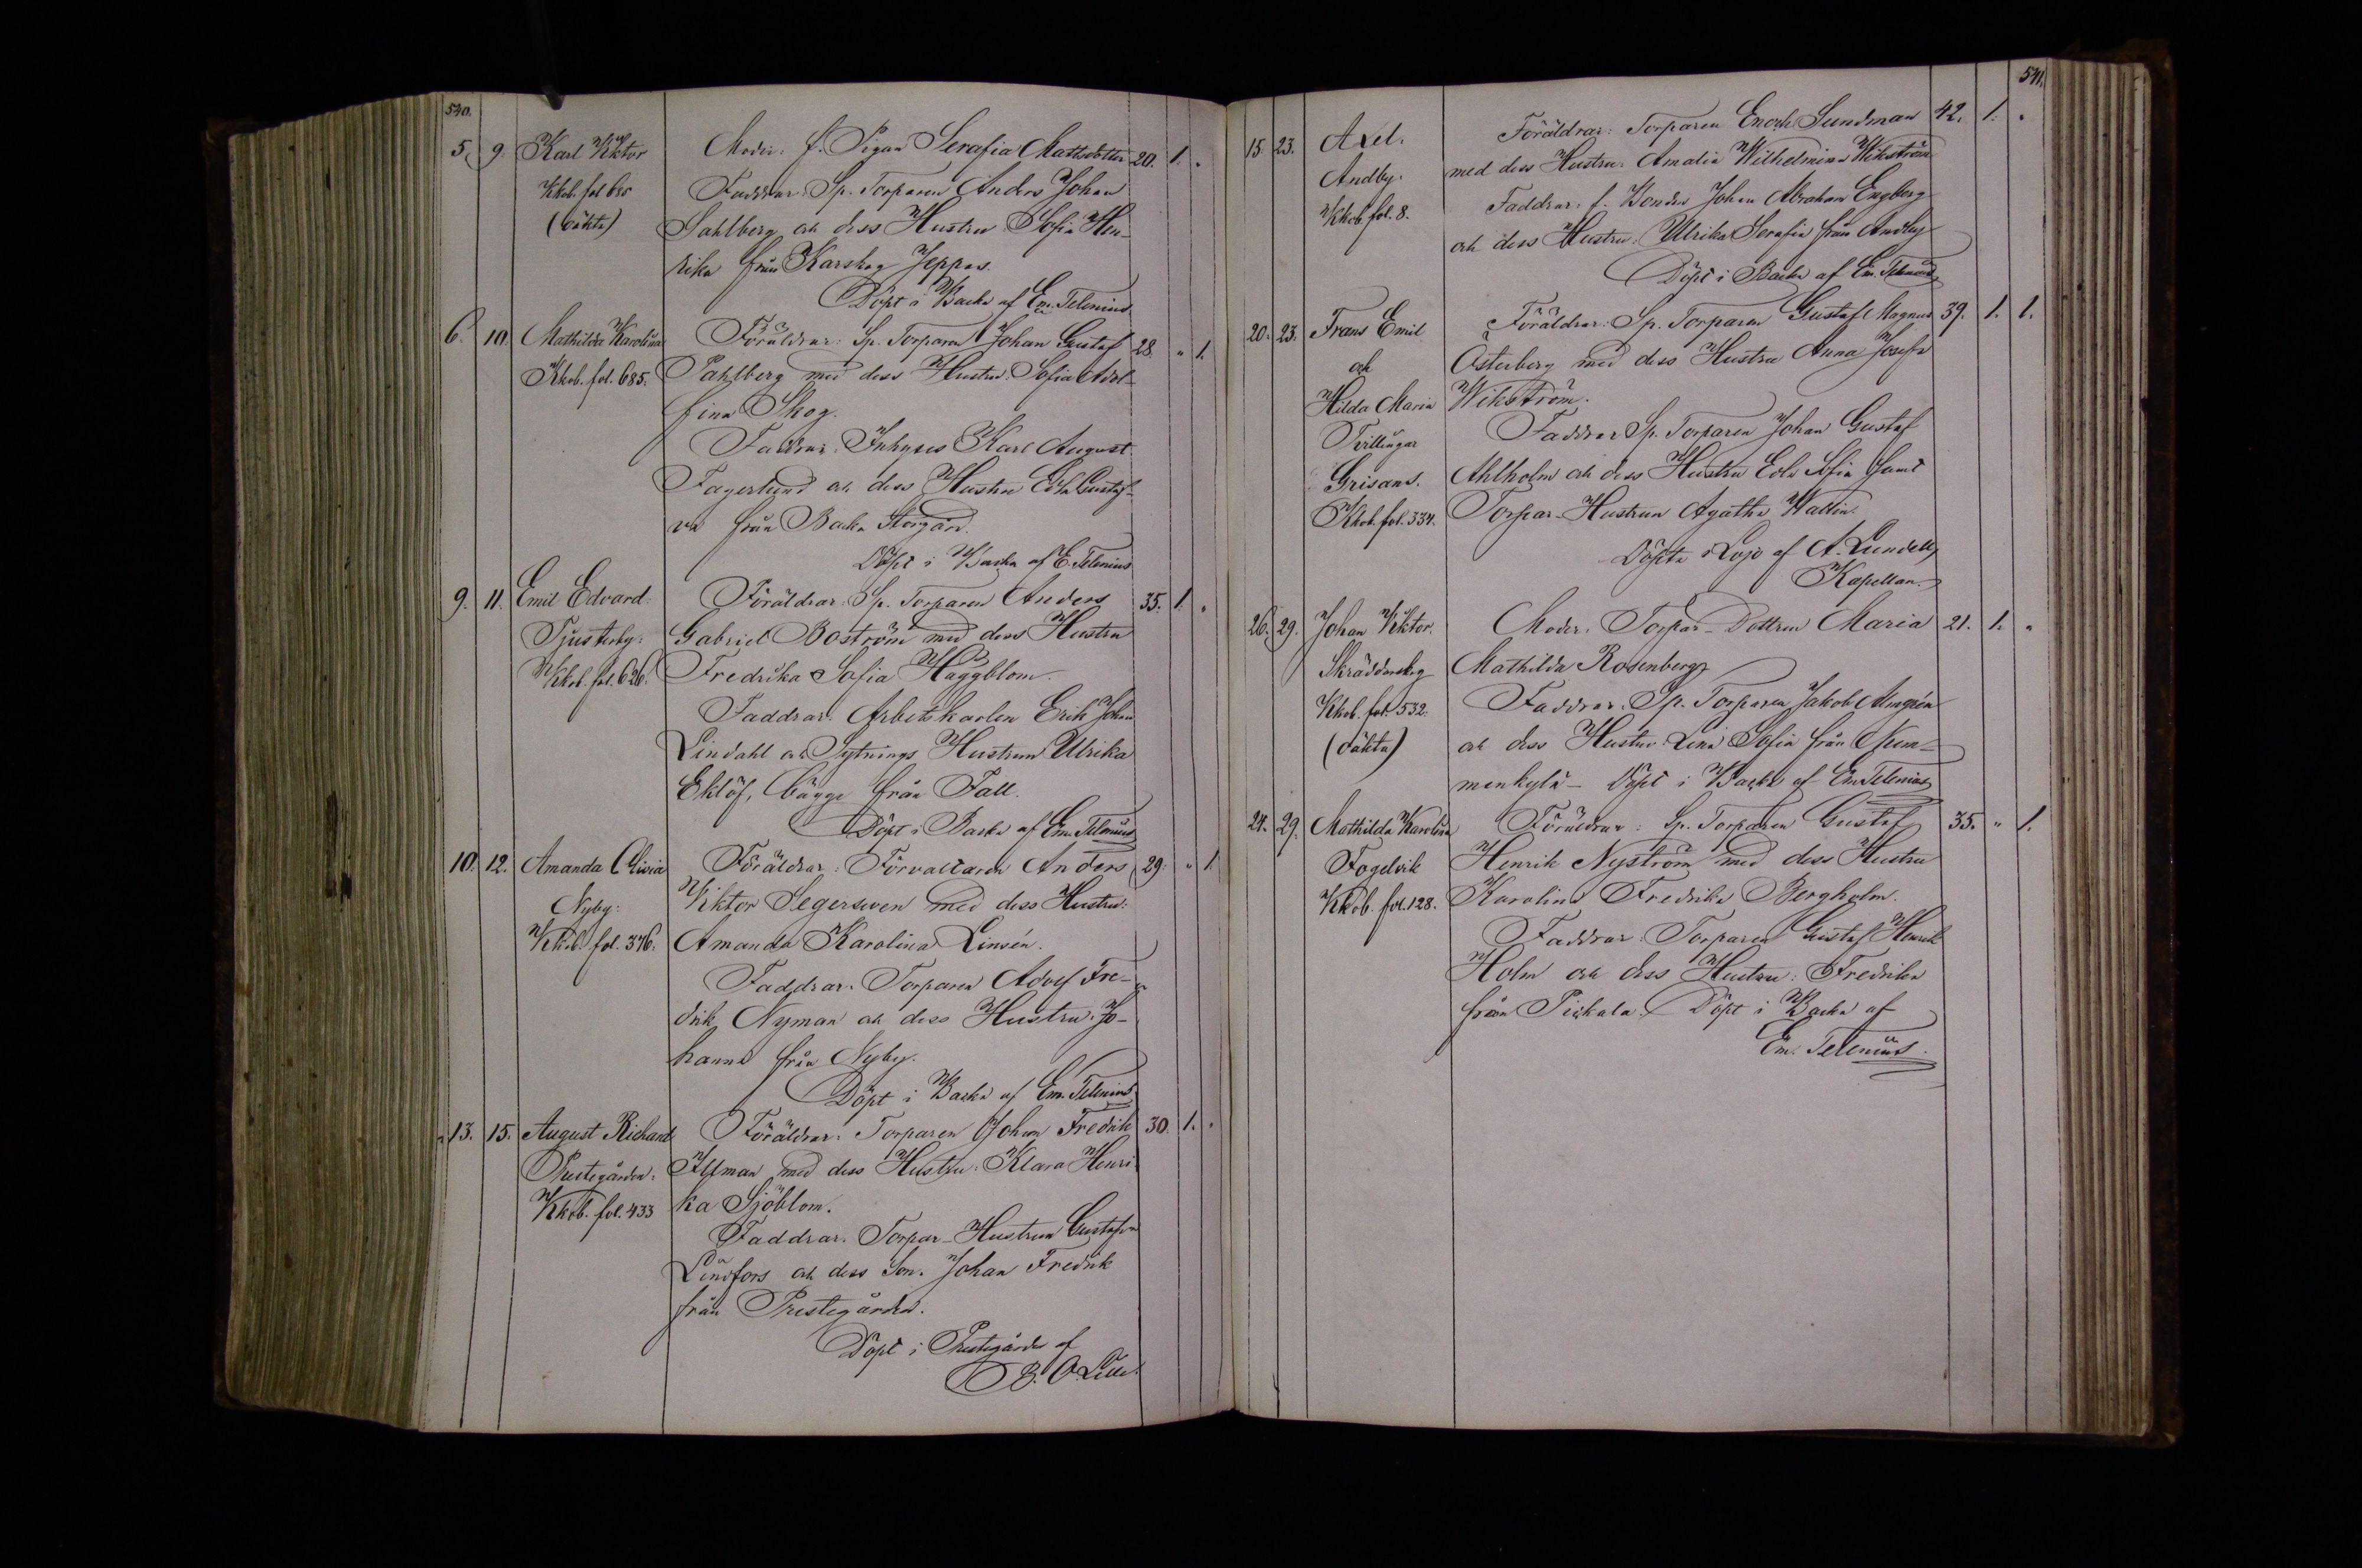 540.
5. 9. Karl Viktor Moder: f. Pigan Serafia Mattsdotter 20. 1. "
Kkob. fol 680 Faddrar: Sp. Torparen Anders Johan
(oäkta) Sahlberg och dess Hustru Sofia Hen-
rika från Karskog Jeppas.
Döpt i Backa af Em. Telenius
6. 10. Mathilda Karolina Föräldrar: Sp. Torparen Johan Gustaf 28. " 1.
Kkob. fol. 685. Pahlberg med dess Hustru: Sofia Adol-
fina Skog.
Faddrar: Inhyses Karl August
Fagerlund och dess Hustru Edla Gustaf-
va från Backa Storgård.
Döpt i Backa af E. Telenius
9. 11. Emil Edvard. Föräldrar: Sp. Torparen Anders 35. 1. "
Pjusterby: Gabriel Boström med dess Hustru
Kkob. fol. 626. Fredrika Sofia Häggblom.
Faddrar: Arbetskarlen Erik Johan
Lindahl och Sytnings Hustrun Ulrika
Eklöf, bägge från Fall.
Döpt i Backa af Em. Telenius
10. 12. Amanda Olivia Föräldrar: Förvaltaren Anders 29. " 1.
Nyby: Viktor Segersven med dess Hustru:
Kkob. fol. 376. Amanda Karolina Linsén.
Faddrar: Torparen Adolf Fre-
drik Nyman och dess Hustru: Jo-
hanna från Nyby.
Döpt i Backa af Em. Telenius
13. 15. August Richard Föräldrar: Torparen Johan Fredrik 30. 1. "
Prestegården: Illman med dess Hustru: Klara Henri-
Kkob. fol. 433 ka Sjöblom.
Faddrar: Torpar-Hustrun Gustafva
Lindfors och dess Son: Johan Fredrik
från Prestegården.
Döpt i Prestegården af
B. O. Lille.
541.
15. 23. Axel. Föräldrar: Torparen Enoch Sundman 42. 1. "
Andby. med dess Hustru: Amalia Wilhelmina Wikström
Kkob. fol. 8. Faddrar: f. Bonden Johan Abraham Engberg
och dess Hustru: Ulrika Serafia från Andby
Döpt i Backa af Em. Telenius
20. 23. Frans Emil Föräldrar: Sp. Torparen Gustaf Magnus 39. 1. 1.
och Österberg med dess Hustru Anna Josefa
Hilda Maria Wikström.
Tvillingar Faddrar Sp. Torparen Johan Gustaf
Grisans. Ahlholm och dess Hustru Eva Sofia samt
Kkob. fol. 334. Torpar-Hustrun Agatha Wallin.
Döpta i Lojo af A. Lundell,
Kapellan.
26. 29. Johan Viktor. Moder: Torpar-Dottren Maria 21. 1. "
Skräddarskog Mathilda Rosenberg
Kkob. fol. 532. Faddrar: Sp. Torparen Jakob Almgrén
(oäkta) och dess Hustru: Lena Sofia från Num-
menkylä - Döpt i Backa af Em. Telenius
24. 29. Mathilda Karolina Föräldrar: Sp. Torparen Gustaf 35. " 1.
Fogelvik Henrik Nyström med dess Hustru
Kkob. fol. 128. Karolina Fredrika Bergholm.
Faddrar: Torparen Gustaf Henrik
Holm och dess Hustru: Fredrika
från Pickala. Döpt i Backa af
Em. Telenius.